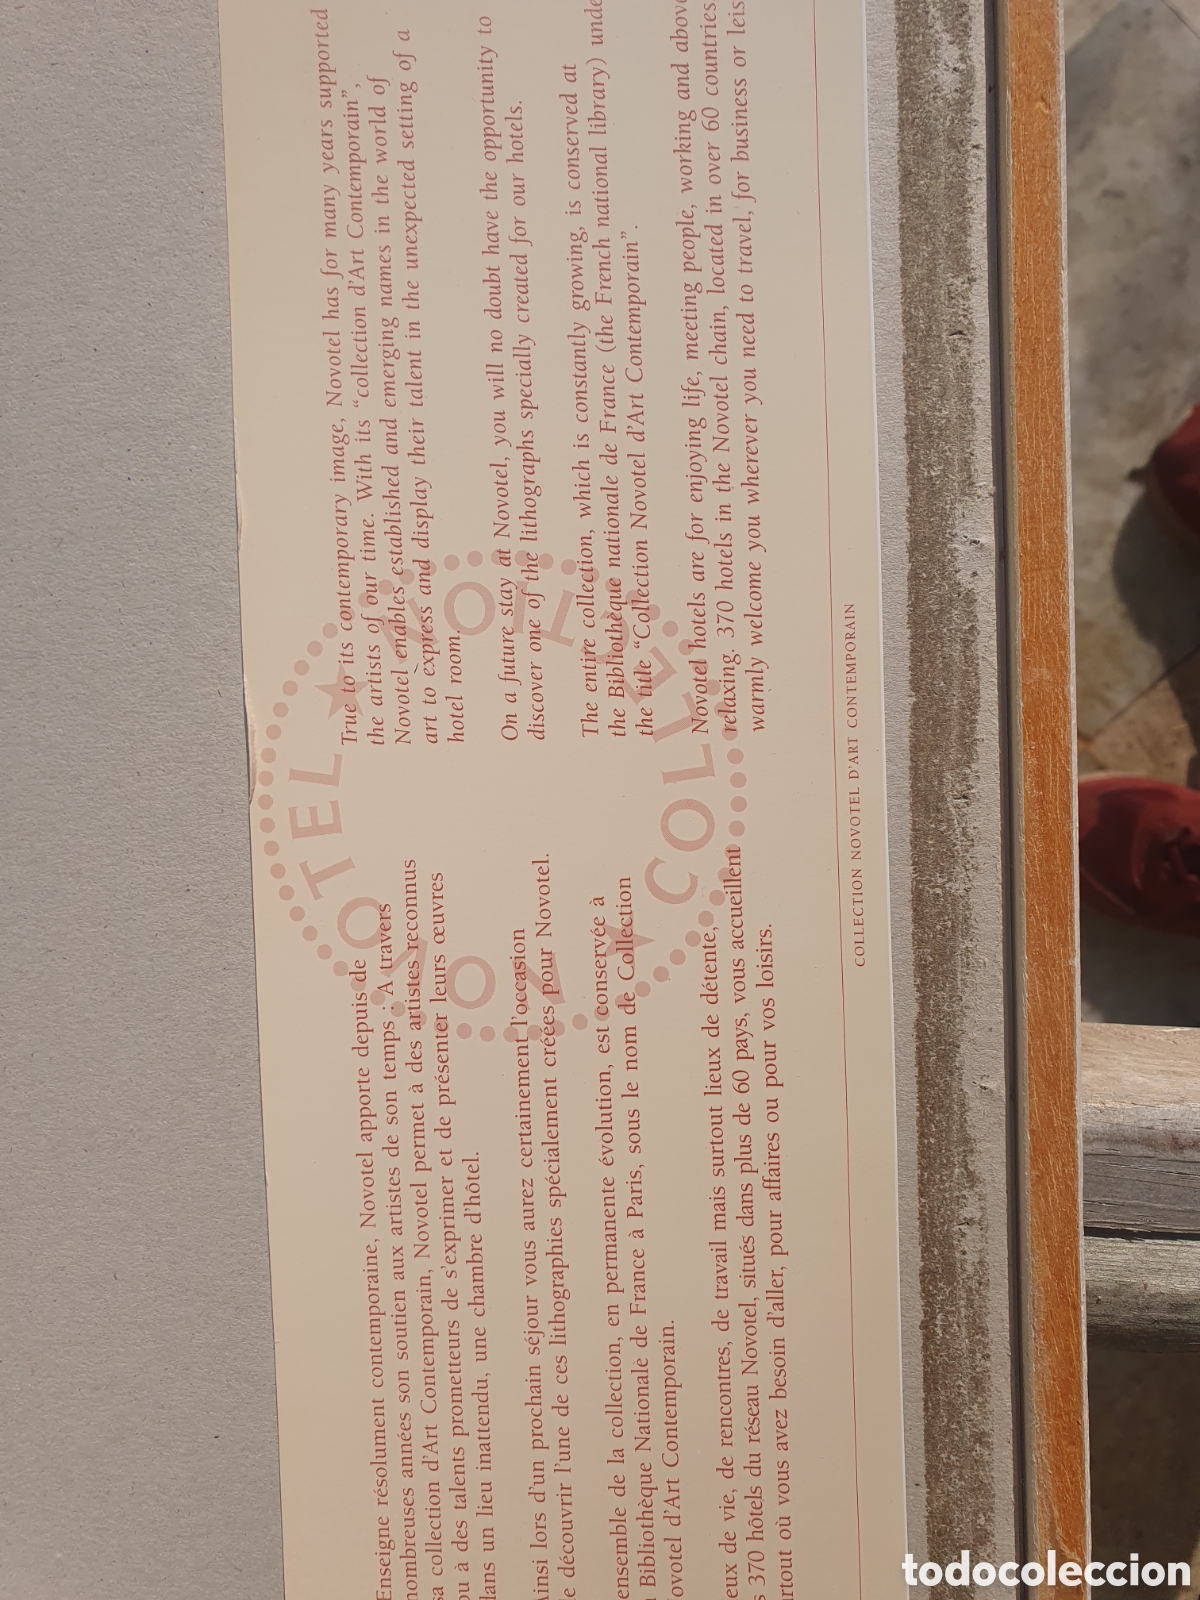 Enseigne résolument contemporaine, Novotel apporte depuis de
nombreuses années son soutien aux artistes de son temps : A travers
sa collection d'Art Contemporain, Novotel permet à des artistes reconnus
ou à des talents prometteurs de s'exprimer et de présenter leurs œuvres
dans un lieu inattendu, une chambre d'hôtel.
Ainsi lors d'un prochain séjour vous aurez certainement l'occasion
de découvrir l'une de ces lithographies spécialement créées pour Novotel.
ensemble de la collection, en permanente évolution, est conservée à
Bibliothèque Nationale de France à Paris, sous le nom de Collection
ovotel d'Art Contemporain.
eux de vie, de rencontres, de travail mais surtout lieux de détente,
s 370 hôtels du réseau Novotel, situés dans plus de 60 pays, vous accueillent
artout où vous avez besoin d'aller, pour affaires ou pour vos loisirs.
True to its contemporary image, Novotel has for many years supported
the artists of our time. With its “collection d'Art Contemporain”,
Novotel enables established and emerging names in the world of
art to express and display their talent in the unexpected setting of a
hotel room.
On a future stay at Novotel, you will no doubt have the opportunity to
discover one of the lithographs specially created for our hotels.
The entire collection, which is constantly growing, is conserved at
the Bibliothèque nationale de France (the French national library) unde
the title “Collection Novotel d'Art Contemporain”.
Novotel hotels are for enjoying life, meeting people, working and above
relaxing. 370 hotels in the Novotel chain, located in over 60 countries
warmly welcome you wherever you need to travel, for business or leis
COLLECTION NOVOTEL D'ART CONTEMPORAIN
todocoleccion